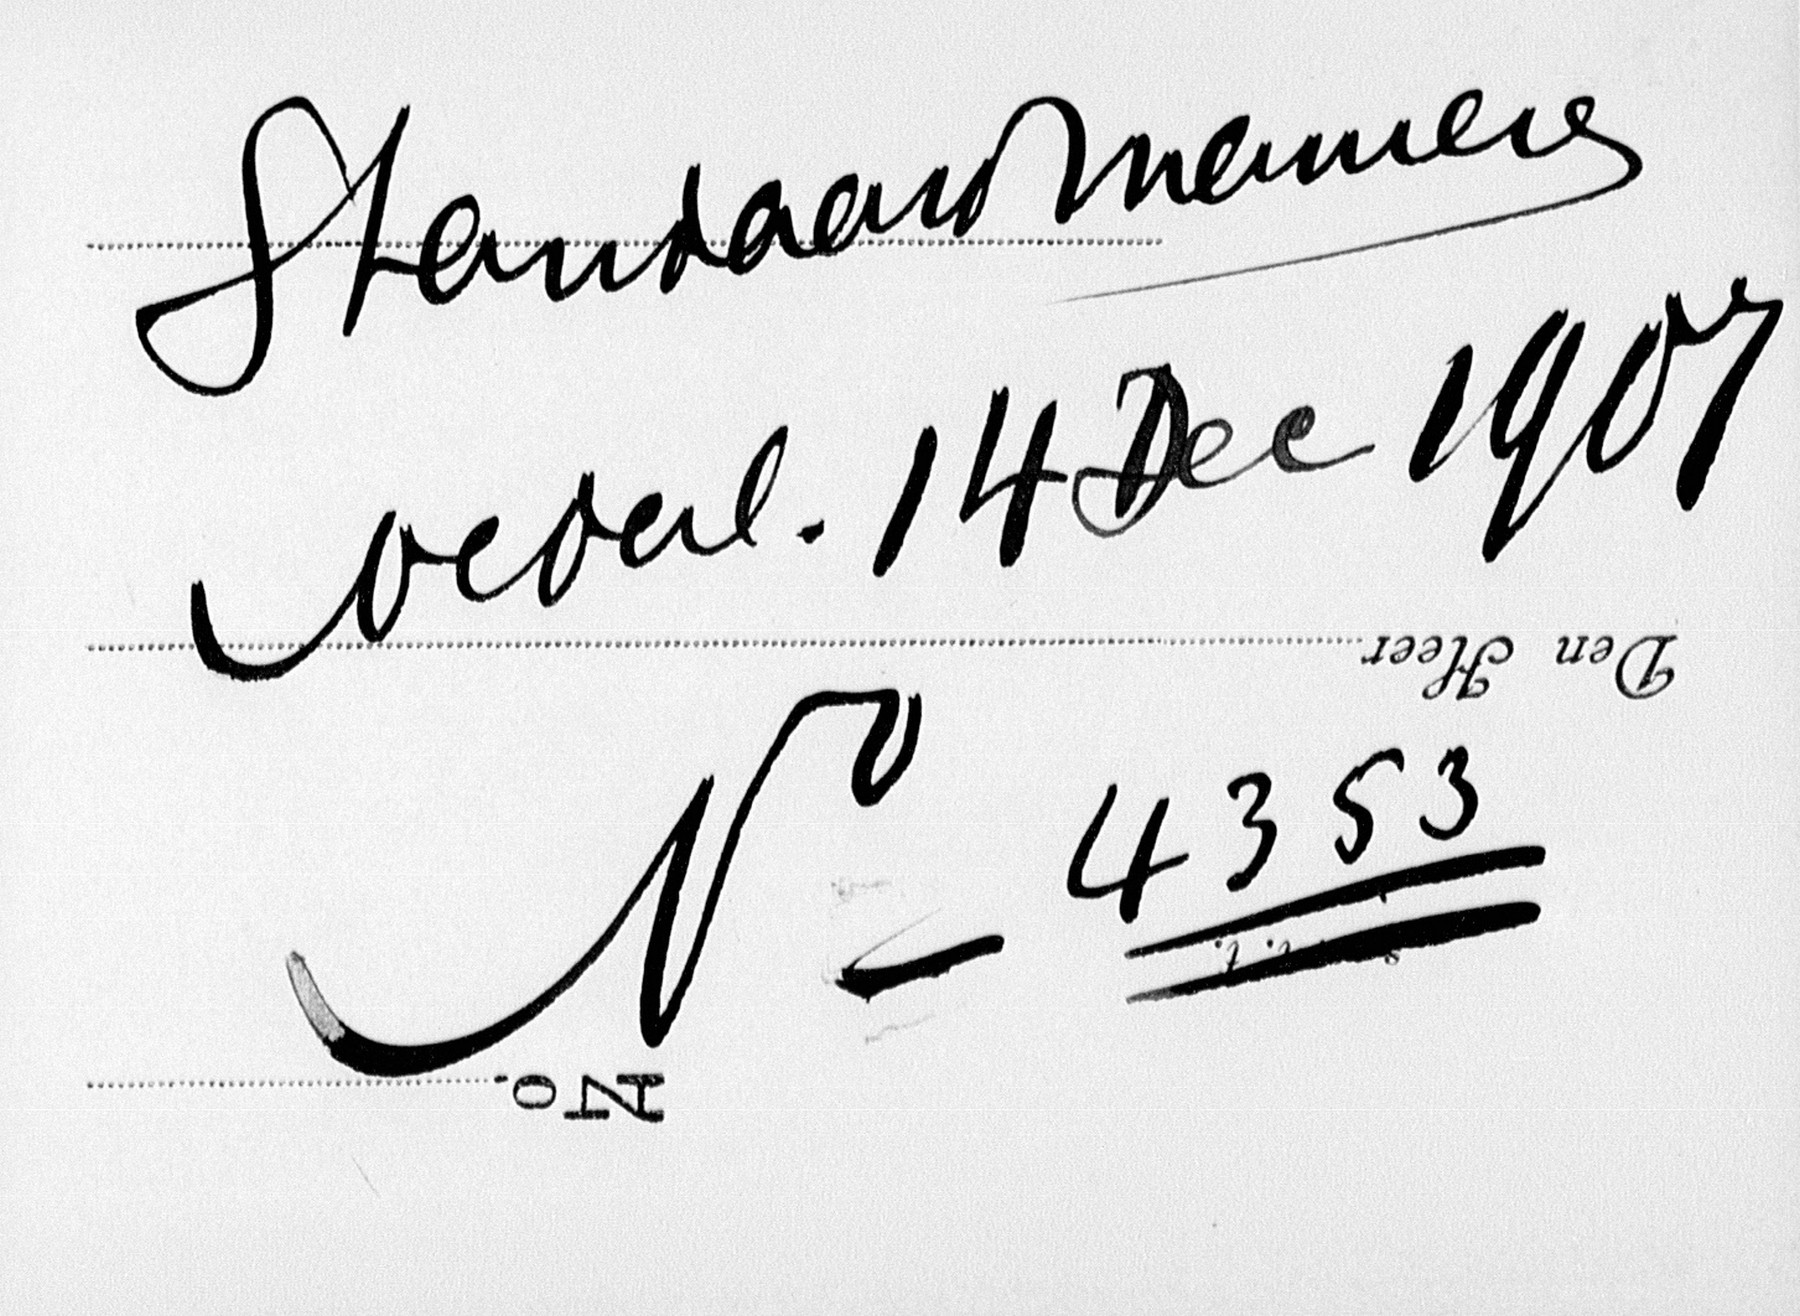 Standaardmeniers
overl. 14 Dec 1907
Den Heer
No - 4353
No.